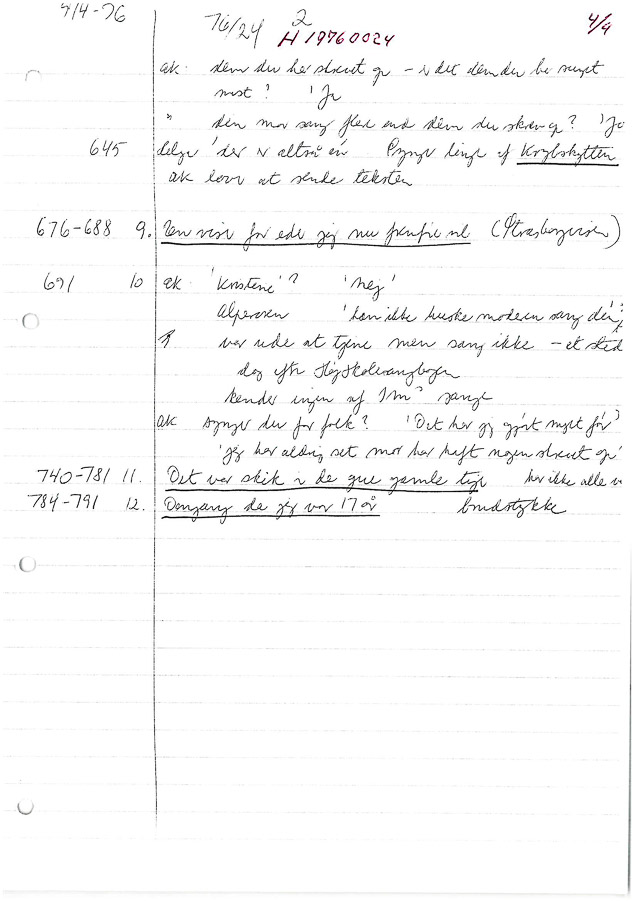 4/4-76 76/24 2 4/9
H 19760024
ak dem du har skrevet op - er det dem du har sunget
mest? 'Ja
" den mor sang flere end dem du skrev op? 'Ja
645 'der er altså én synger længe af Krybskytten
ak lover at sende teksten
676-688 9. En vise for eder jeg nu
691 10 ak 'Kristene'? 'nej'
'kan ikke huske moderen sang
var ude at tjene men sang ikke - et sted
dog efter Højskolesangbogen
kender ingen af sange
ak synger du for folk? 'Det har jeg gjort meget
'jeg har aldrig set mor har haft nogen skrevet op'
740-781 11. Det var skik i de gamle har ikke alle
784-791 12. Dengang da jeg var 17 år brudstykke